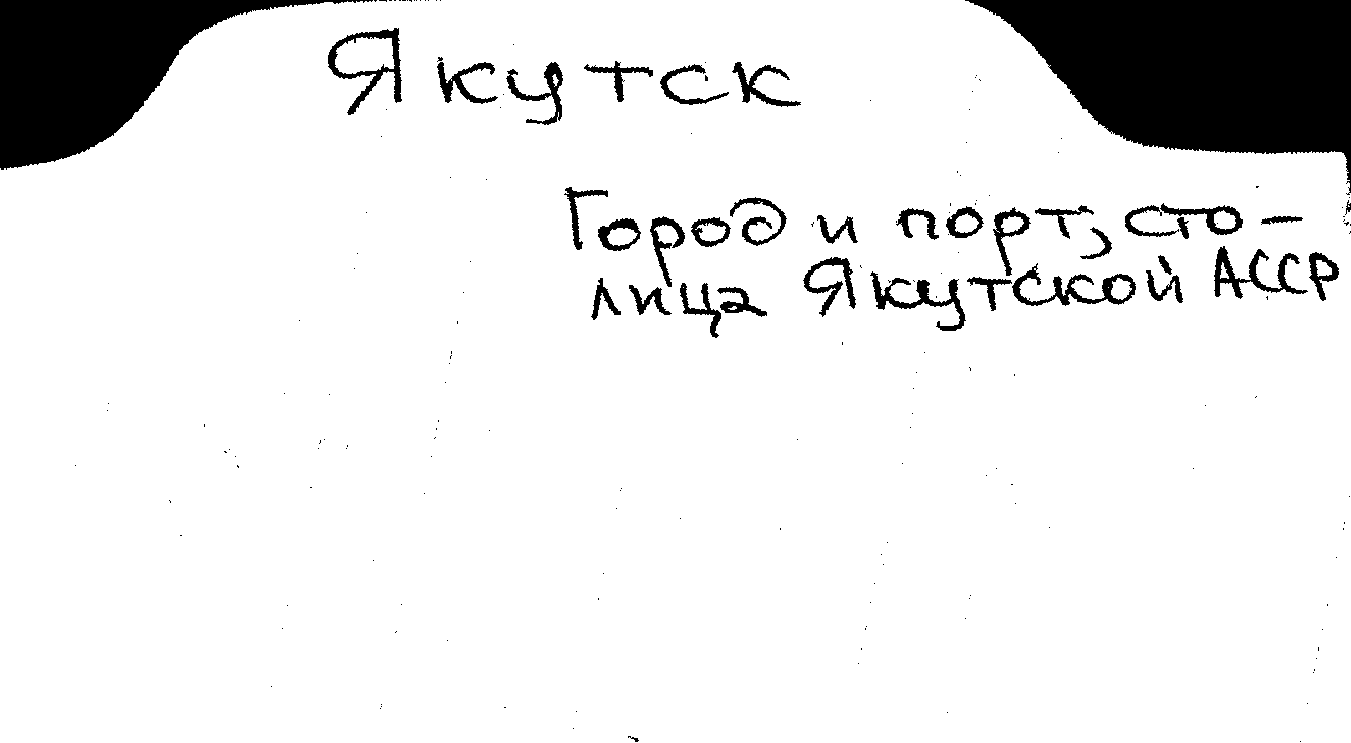 Якутск
Город и порт, сто-
лица Якутской АССР